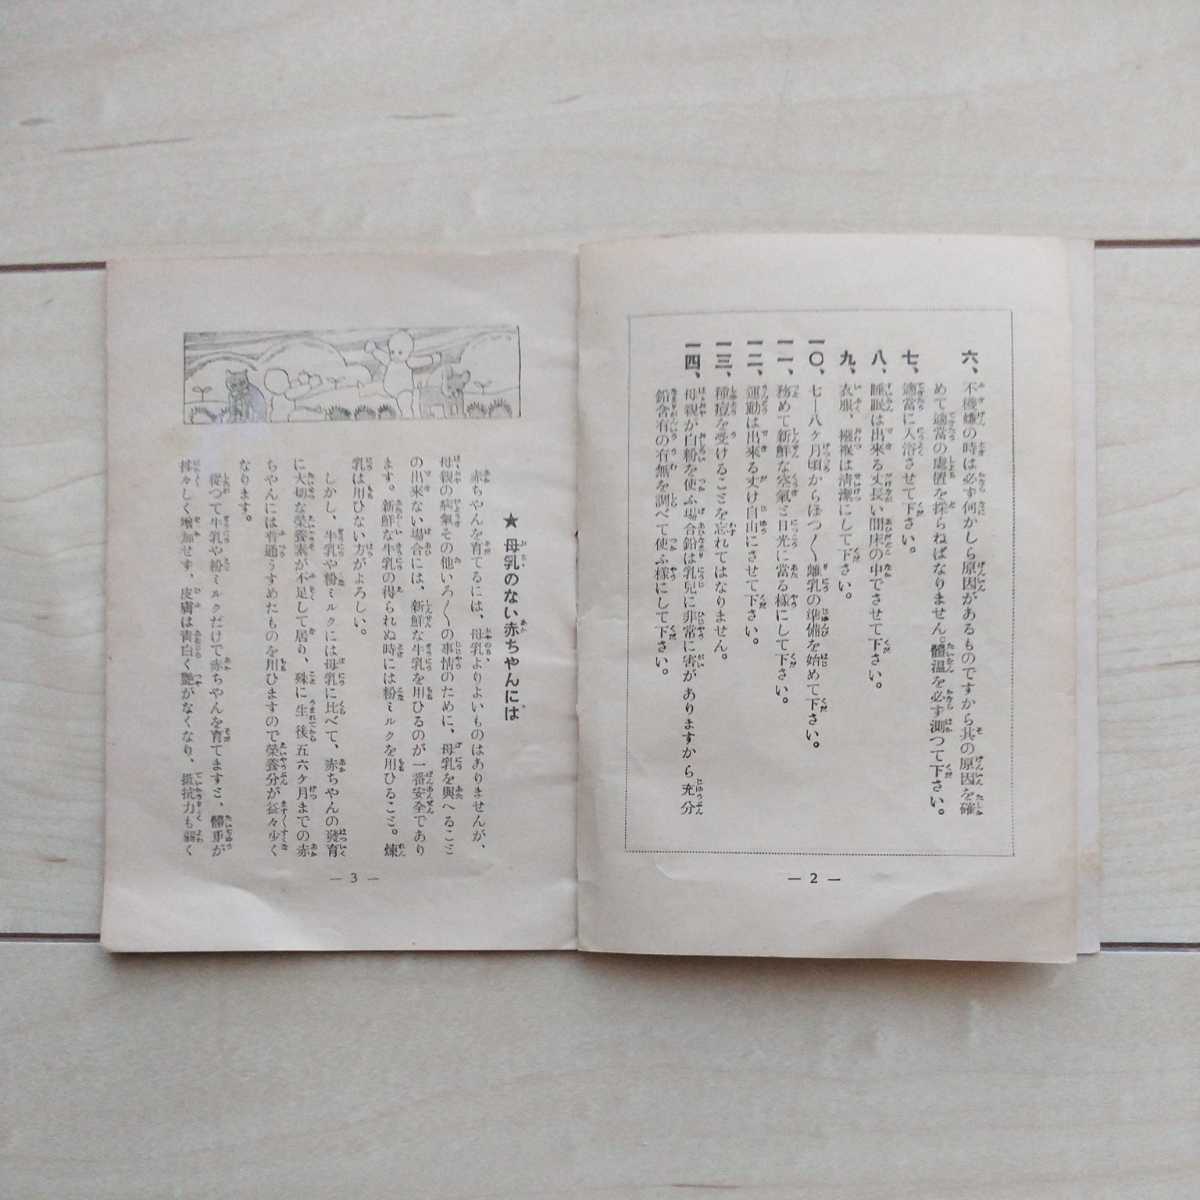 六、不機嫌の時は必ず何かしら原因があるものですから其の原因を確
めて適當の處置を採らねばなりません。體温を必ず測つて下さい。
七、適當に入浴させて下さい。
八、睡眠は出來る丈長い間床の中でさせて下さい。
九、衣服、襁褓は清潔にして下さい。
一〇、七—八ヶ月頃からぼつ〱離乳の準備を始めて下さい。
一一、務めて新鮮な空氣と日光に當る様にして下さい。
一二、運動は出來る丈け自由にさせて下さい。
一三、種痘を受けることを忘れてはなりません。
一四、母親が白粉を使ふ場合鉛は乳兒に非常に害がありますから充分
鉛含有の有無を調べて使ふ様にして下さい。
— 2 —
★母乳のない赤ちやんには
赤ちやんを育てるには、母乳よりよいものはありませんが、
母親の病氣その他いろ〱の事情のために、母乳を與へること
の出來ない場合には、新鮮な牛乳を用ひるのが一番安全であり
ます。新鮮な牛乳の得られぬ時には粉ミルクを用ひること。煉
乳は用ひない方がよろしい。
しかし、牛乳や粉ミルクには母乳に比べて、赤ちやんの發育
に大切な榮養素が不足して居り、殊に生後五六ヶ月までの赤
ちやんには普通うすめたものを用ひますので榮養分が益々少く
なります。
從つて牛乳や粉ミルクだけで赤ちやんを育てますと、體重が
捗々しく增加せず、皮膚は靑白く艶がなくなり、抵抗力も弱く
— 3 —